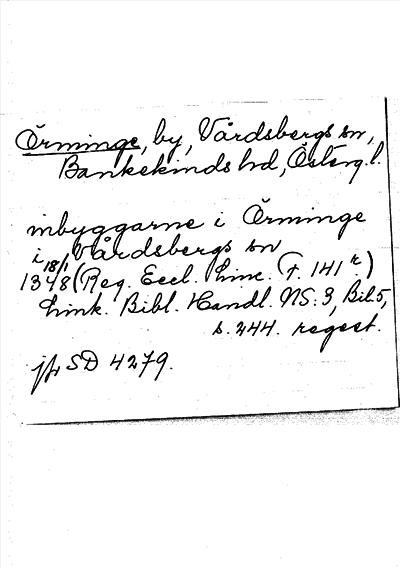 Örminge, by, Vårdsbergs sn,
Bankekinds hd, Österg. l.
inbyggarne i Örminge
i Vårdsbergs sn
18/1 1348 (Reg. Eccl. Linc. F. 141 r.)
Link. Bibl. Handl. NS. 3, Bil. 5,
s. 244. regest.
jfr SD 4279.